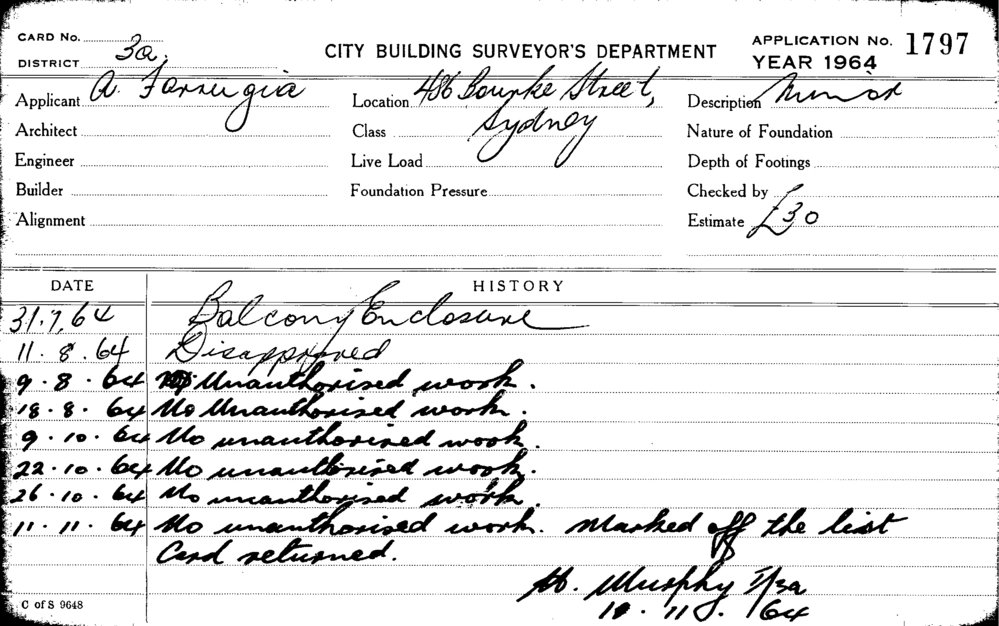 CARD No.
DISTRICT 3a.
CITY BUILDING SURVEYOR'S DEPARTMENT
APPLICATION No. 1797
YEAR 1964
Applicant A. Farrugia
Location 486 Bourke Street,
Sydney
Description Minor
Architect
Class
Nature of Foundation
Engineer
Live Load
Depth of Footings
Builder
Foundation Pressure
Checked by
Alignment
Estimate £30
DATE HISTORY
31.7.64 Balcony Enclosure
11.8.64 Disapproved
9.8.64 Unauthorised work.
18.8.64 No Unauthorised work.
9.10.64 No unauthorised work.
22.10.64 No unauthorised work.
26.10.64 No unauthorised work.
11.11.64 No unauthorised work. Marked off the list
Card returned.
Murphy
11.64
C of S 9648